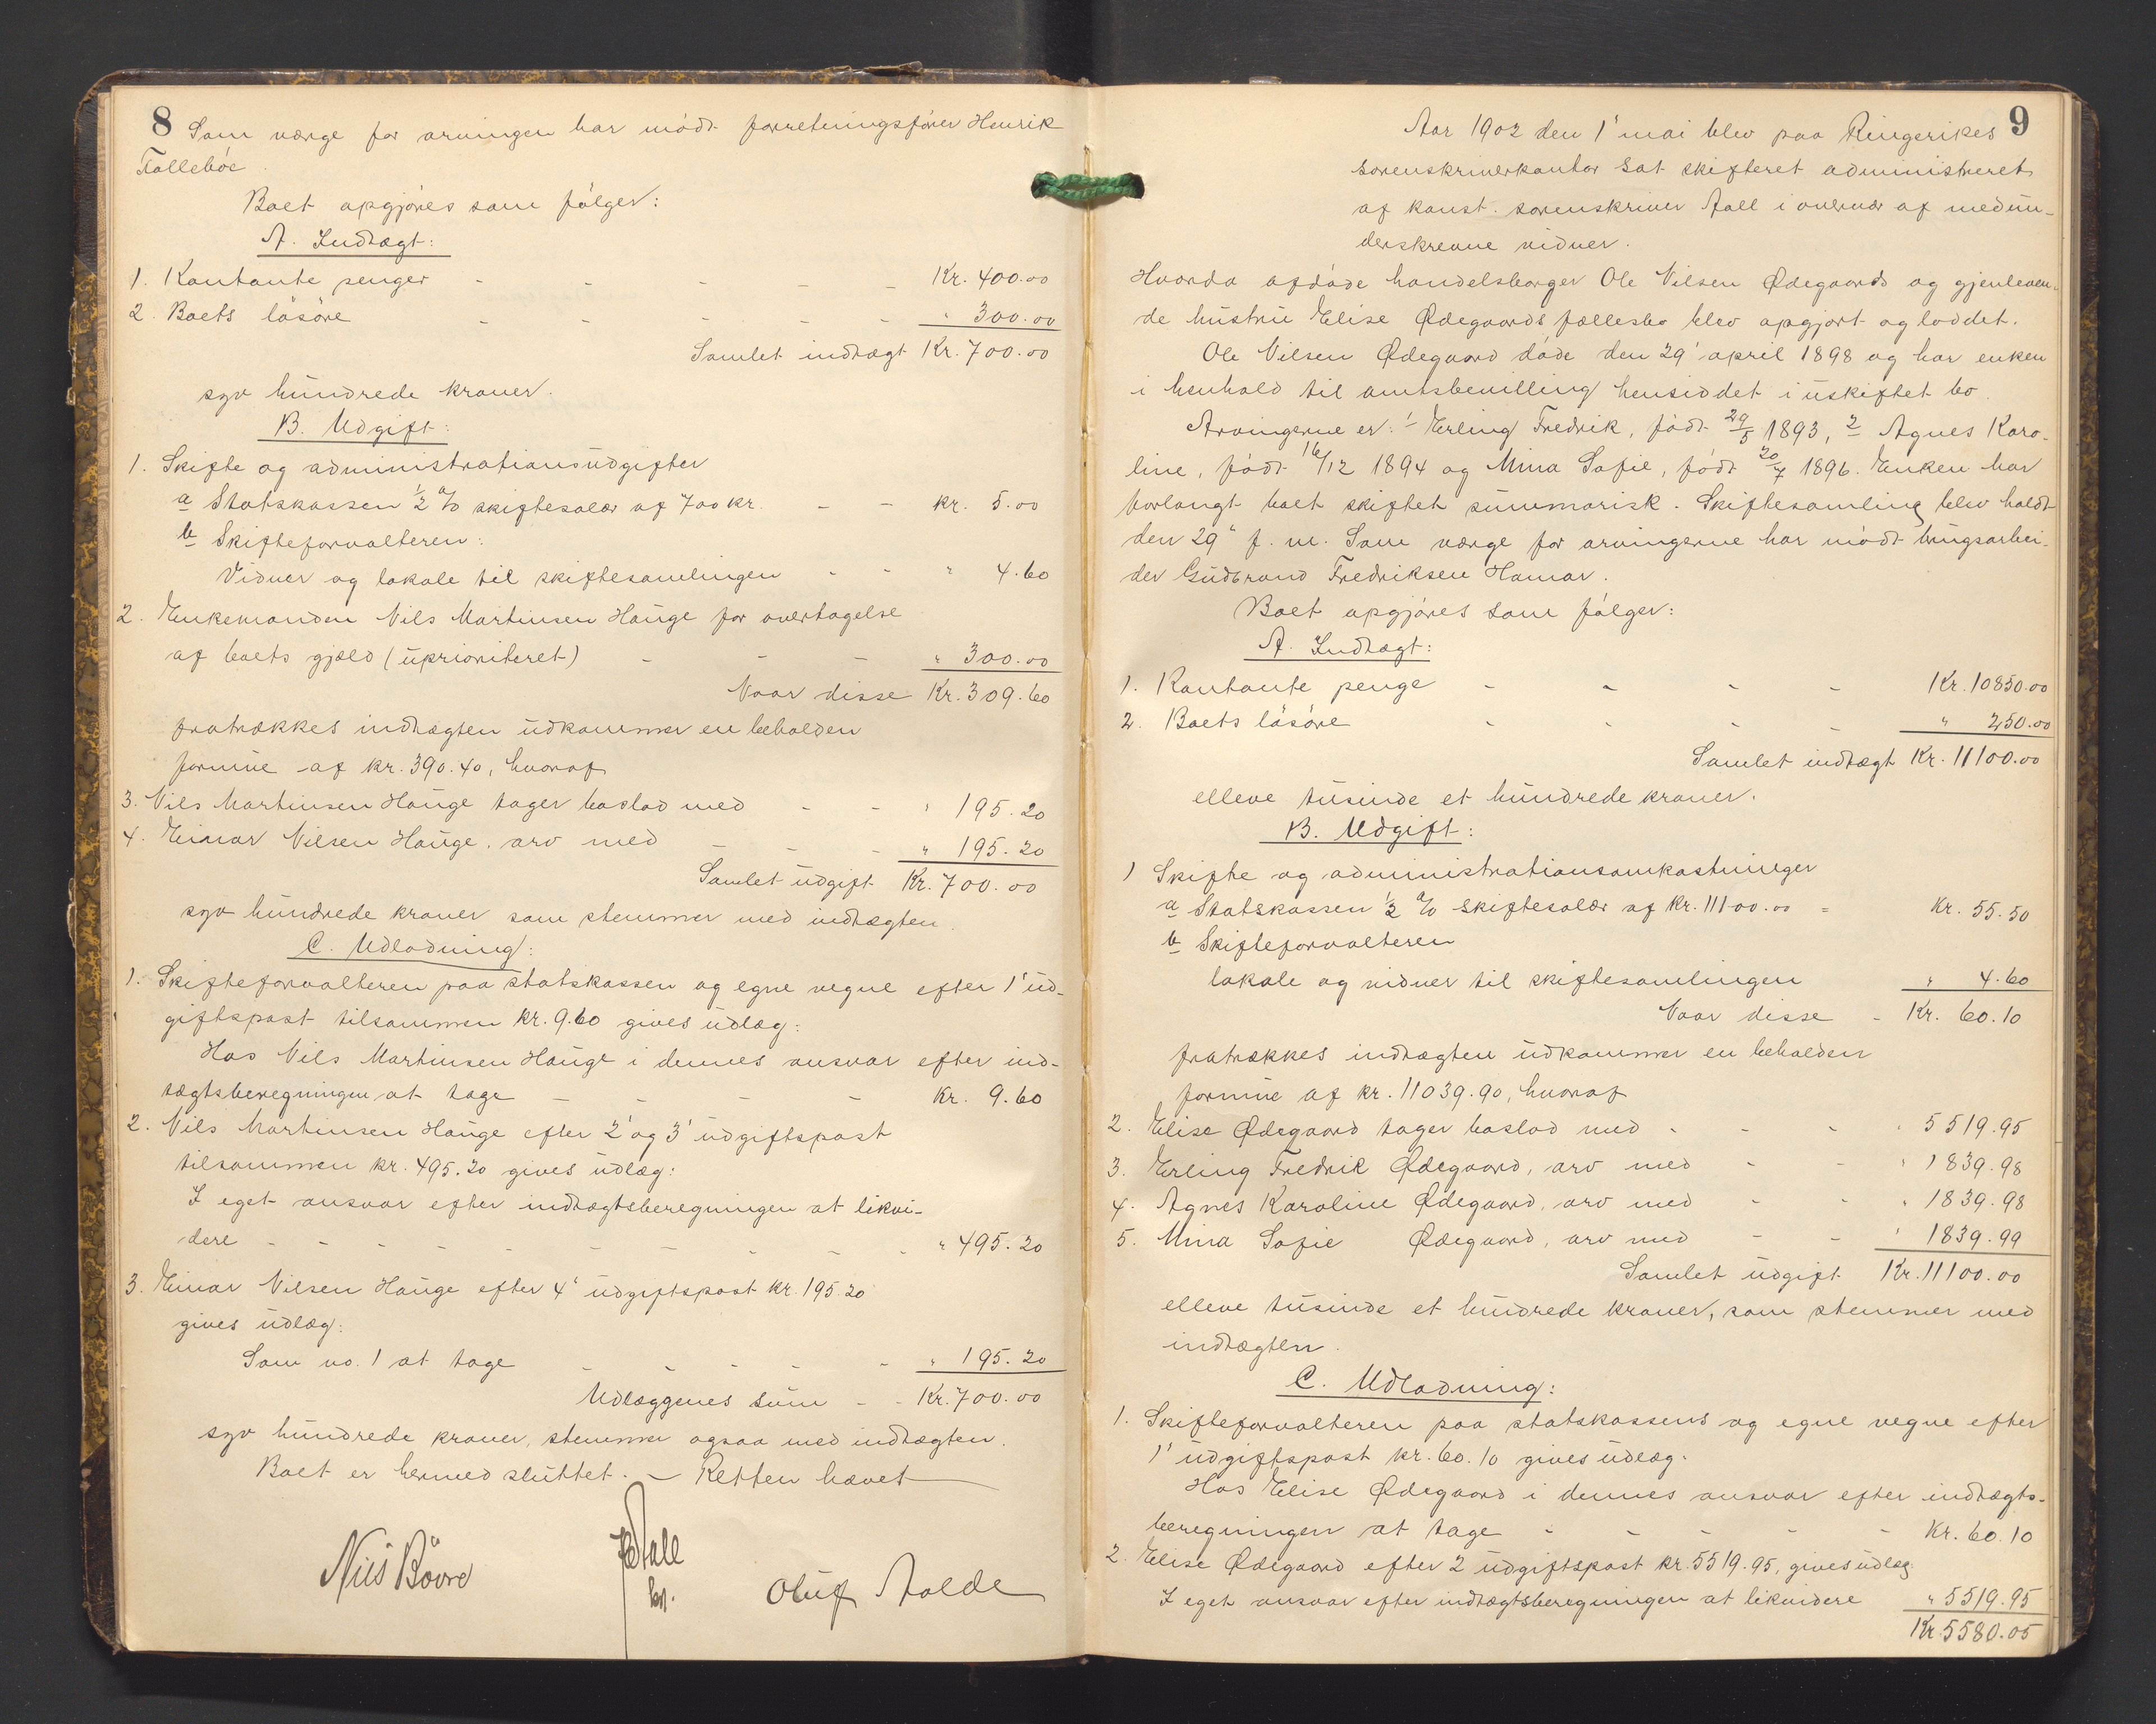 8
Som værge for arvingen har mödt forretningsförer Henrik
Folleböe.
Boet opgjöres som fölger:
A. Indtægt:
1. Kontante penger - - - - - Kr. 400.00
2. Boets lösöre - - - - - " 300.00
Samlet indtægt Kr. 700.00
syv hundrede kroner.
B. Udgift:
1. Skifte og administrationsudgifter
a Statskassen ½ % skiftesalær af 700 kr. - - kr. 5.00
b Skifteforvalteren:
Vidner og lokale til skiftesamlingen - - " 4.60
2. Enkemanden Nils Martinsen Hauge for overtagelse
af boets gjæld (uprioriteret) - - - " 300.00
Naar disse Kr. 309.60
fratrækkes indtægten udkommer en beholden
formue af kr. 390.40, hvoraf
3. Nils Martinsen Hauge tager boslod med - - " 195.20
4. Einar Nilsen Hauge. arv med - - - " 195.20
Samlet udgift Kr. 700.00
syv hundrede kroner som stemmer med indtægten.
C. Udlodning:
1. Skifteforvalteren paa statskassen og egne vegne efter 1' ud-
giftspost tilsammen kr. 9.60 gives udlæg:
Hos Nils Martinsen Hauge i dennes ansvar efter ind-
tægtsberegningen at tage - - - - Kr. 9.60
2. Nils Martinsen Hauge efter 2' og 3' udgiftspost
tilsammen kr. 495.20 gives udlæg:
I eget ansvar efter indtægtsberegningen at likvi-
dere - - - - - - - - - - " 495.20
3. Einar Nilsen Hauge efter 4' udgiftspost kr. 195.20
gives udlæg:
Som no. 1 at tage - - - - - " 195.20
Udlæggenes sum - - Kr. 700.00
syv hundrede kroner, stemmer ogsaa med indtægten.
Boet er hermed sluttet. - Retten hævet
Nils Bövre Aall Oluf Aalde
9
Aar 1902 den 1' mai blev paa Ringerikes
sorenskriverkontor sat skifteret administreret
af konst. sorenskriver Aall i overvær af medun-
derskrevne vidner.
Hvorda afdöde handelsborger Ole Nilsen Ødegaards og gjenleven-
de hustru Elise Ødegaards fællesbo blev opgjort og loddet.
Ole Nilsen Ødegaard döde den 29' april 1898 og har enken
i henhold til amtsbevilling hensiddet i uskiftet bo.
Arvingerne er: 1 Erling Fredrik, födt 29/5 1893, 2 Agnes Karo-
line, födt 16/12 1894 og Mina Sofie, födt 20/7 1896. Enken har
forlangt boet skiftet summarisk. Skiftesamling blev holdt
den 29" f. m. Som værge for arvingerne har mödt brugsarbei-
der Gudbrand Fredriksen Hamar.
Boet opgjöres som fölger:
A. Indtægt:
1. Kontante penge - - - - Kr. 10850.00
2. Boets lösöre - - - - " 250.00
Samlet indtægt Kr. 11100.00
elleve tusinde et hundrede kroner.
B. Udgift:
1 Skifte og administrationsomkostninger
a Statskassen ½ % skiftesalær af Kr. 11100.00 - Kr. 55.50
b Skifteforvalteren
lokale og vidner til skiftesamlingen " 4.60
Naar disse - Kr. 60.10
fratrækkes indtægten udkommer en beholden
formue af kr. 11039.90, hvoraf
2. Elise Ødegaard tager boslod med - - - " 5519.95
3. Erling Fredrik Ødegaard, arv med - - " 1839.98
4. Agnes Karoline Ødegaard, arv med - - " 1839.98
5. Mina Sofie Ødegaard, arv med - - " 1839.99
Samlet udgift Kr. 11100.00
elleve tusinde et hundrede kroner, som stemmer med
indtægten.
C. Udlodning:
1. Skifteforvalteren paa statskassens og egne vegne efter
1' udgiftspost kr. 60.10 gives udlæg.
Hos Elise Ødegaard i dennes ansvar efter indtægts-
beregningen at tage - - - - - Kr. 60.10
2. Elise Ødegaard efter 2 udgiftspost kr. 5519.95, gives udlæg.
I eget ansvar efter indtægtsberegningen at likvidere " 5519.95
Kr. 5580.05